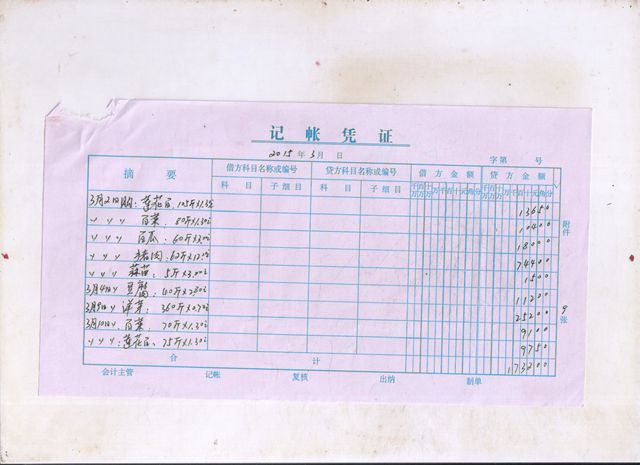 记帐凭证
2015年3月 日
字第 号
摘要 借方科目名称或编号 贷方科目名称或编号 借方金额 贷方金额
科目 子细目 科目 子细目 千百十万千百十元角分 千百十万千百十元角分
3月2日购:莲花白 105斤×1.30 13650
〃〃〃 白菜: 80斤×1.30 10400
〃〃〃 白瓜: 60斤×3.00 18000
〃〃〃 猪肉:62斤×12.00 74400
〃〃〃 蒜苗: 5斤×3.00 1500
3月4日〃 豆腐: 40斤×2.80 11200
3月9日〃 洋芋: 360斤×0.70 25200
3月10日〃 白菜: 70斤×1.30 9100
〃〃〃:莲花白: 75斤×1.30 9750
合计 173200
附件 9张
会计主管 记帐 复核 出纳 制单